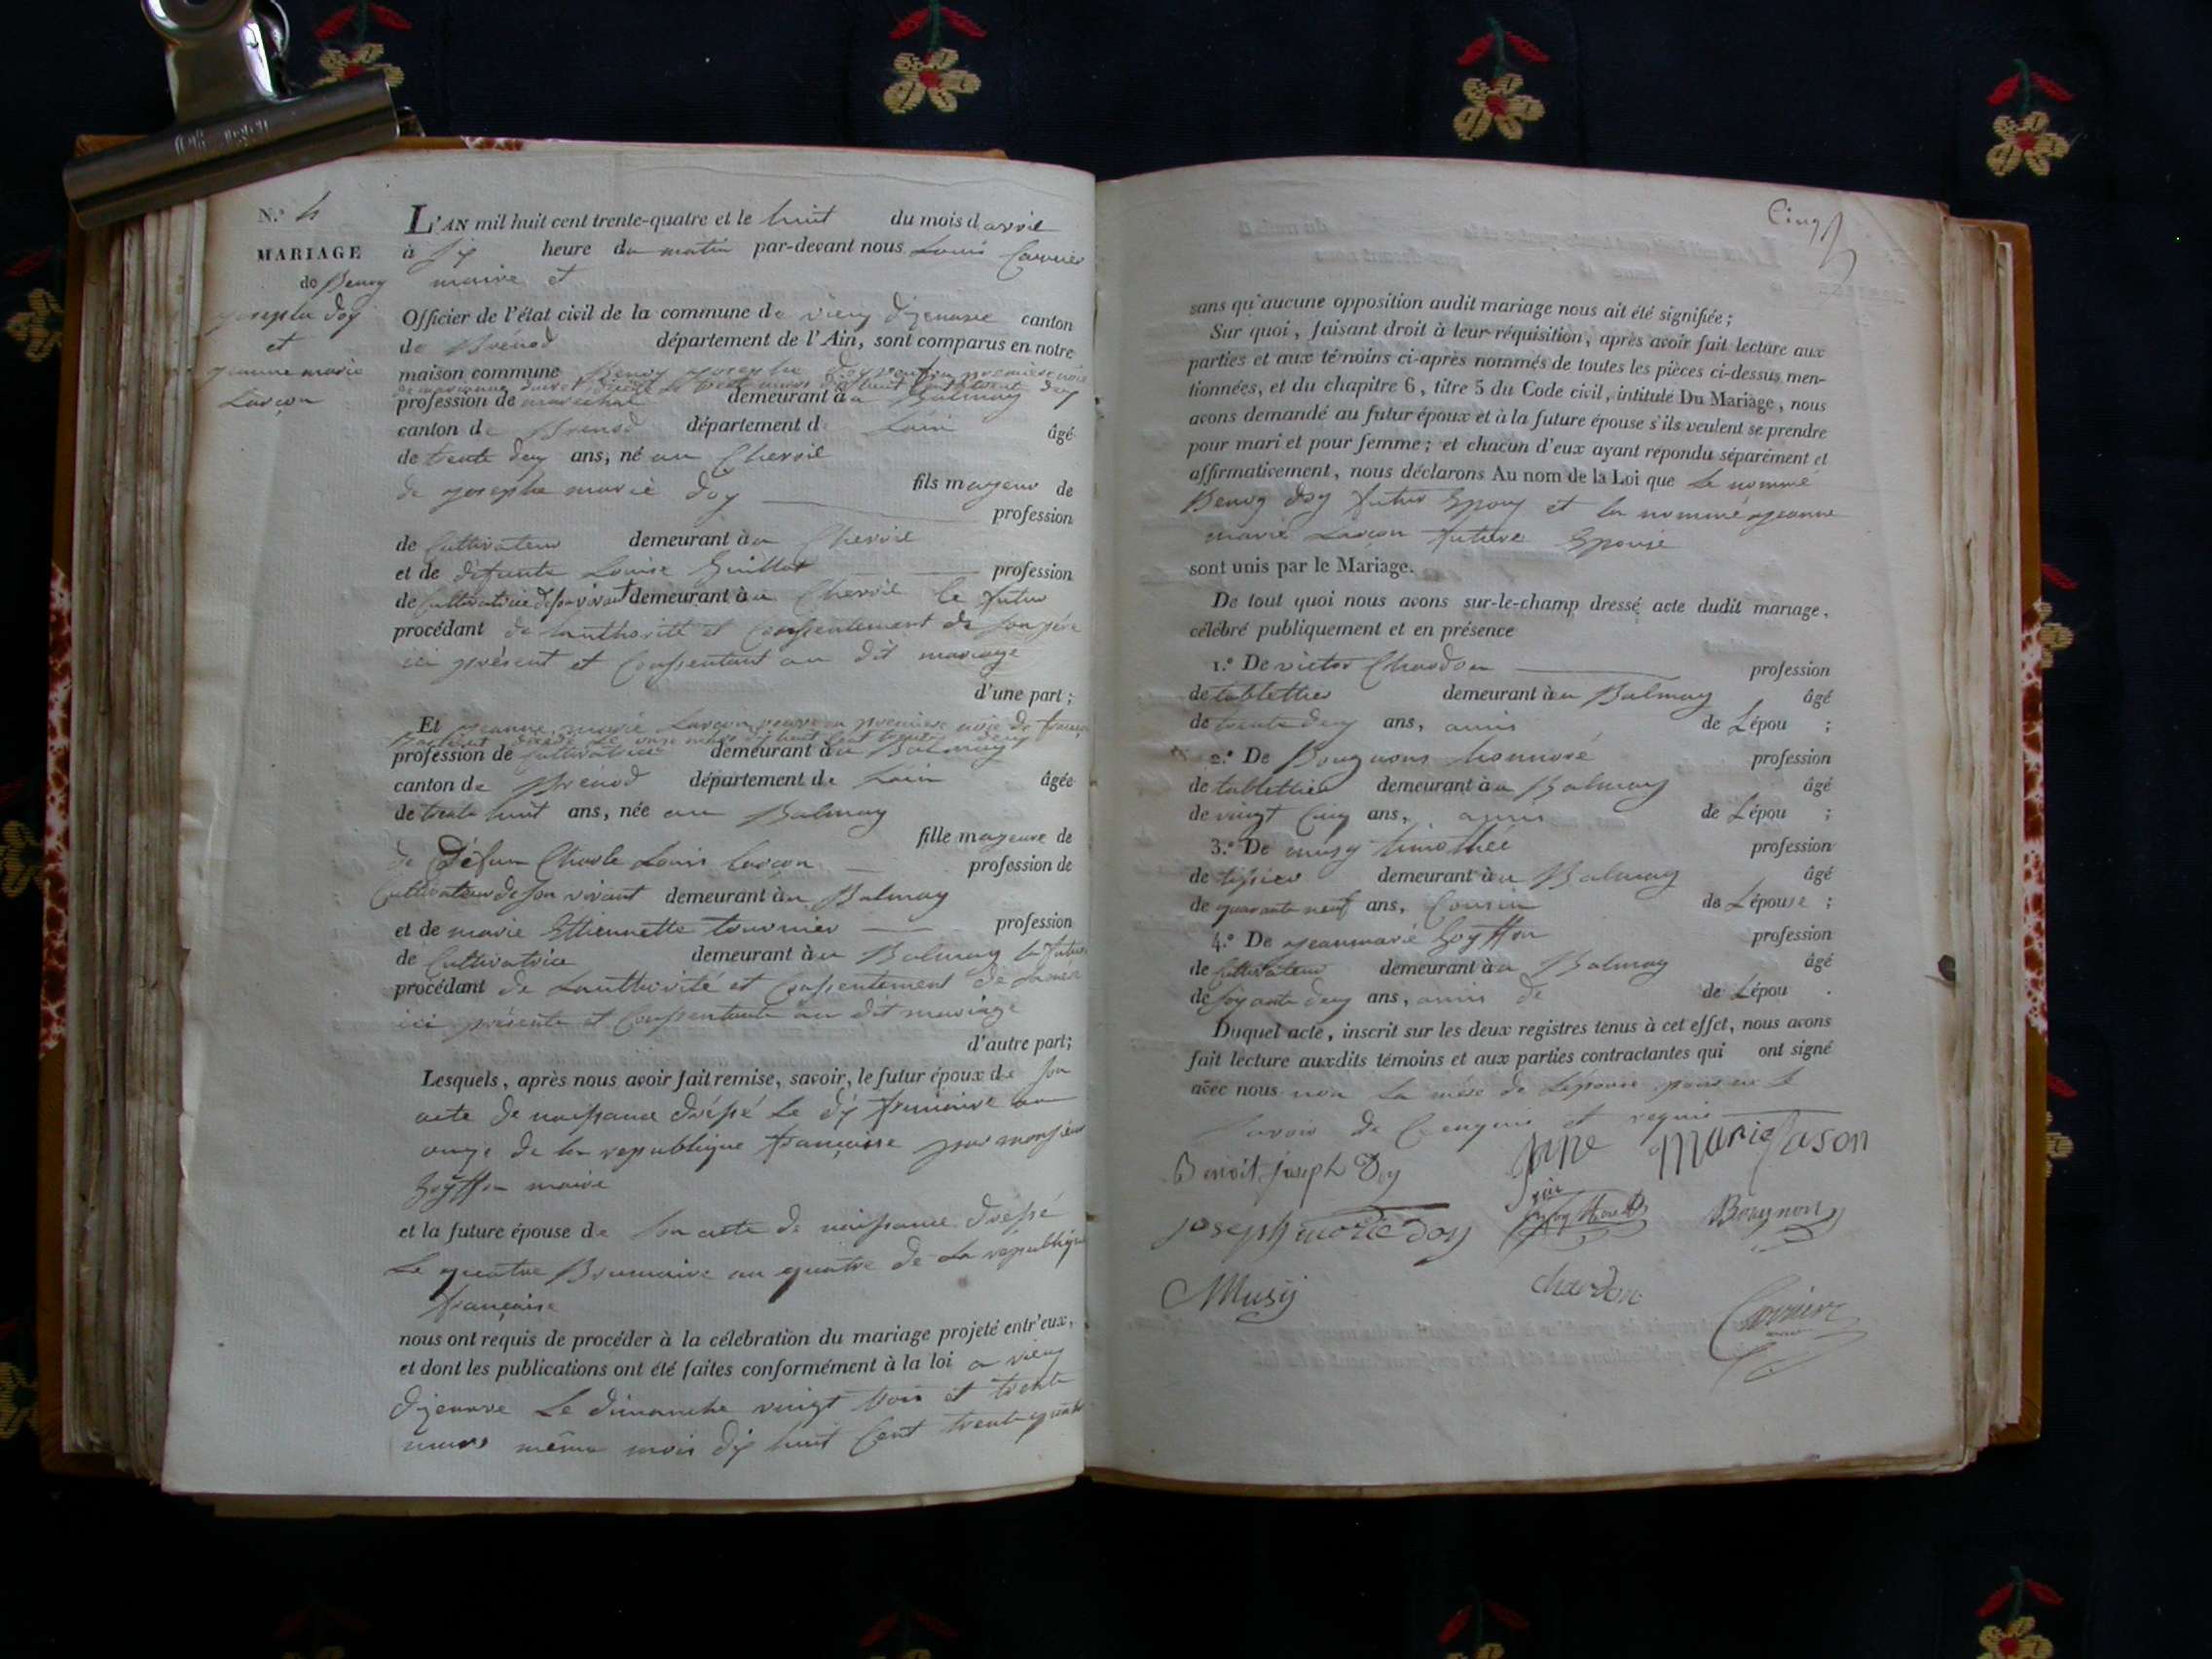 N.º 4
MARIAGE
de Benoy
josephe doy
et
jeanne marie
Larçon
L'AN mil huit cent trente-quatre et le huit du mois d avril
à dix heure du matin par-devant nous Louis Carrier
maire et
Officier de l'état civil de la commune de vieu dizenave canton
de Brenod département de l'Ain, sont comparus en notre
maison commune Benoy josephe Doy veuf en première noce
profession de marechal demeurant à a Balmay
canton de Brenod département de Lain âgé
de trente deux ans, né au Chevril
de josephe marie doy fils majeur de
profession
de Cultivateur demeurant à a Chevril
et de defunte Louise Guillot profession
de Cultivatrice de son vivant demeurant à a Chevril le futur
procédant de lauthorité et Consentement de son père
ici présent et Consentant au dit mariage
d'une part ;
Et jeanne marie Larçon veuve en première noce de
profession de Cultivatrice demeurant à a Balmay
canton de Brenod département de Lain âgée
de trente huit ans, née au Balmay
fille majeure de
de Défun Charle Louis Larçon profession de
Cultivateur de son vivant demeurant à a Balmay
et de marie Ettiennette tournier profession
de Cultivatrice demeurant à a Balmay la future
procédant de Lauthorité et Consentement de sa mère
ici présente et Consentante au dit mariage
d'autre part;
Lesquels, après nous avoir fait remise, savoir, le futur époux de son
acte de naissance dréssé le dix frimaire an
onze de la republique française par monsieur
Goyffon maire
et la future épouse de son acte de naissance dréssé
Le quatre Brumaire an quatre de La république
française
nous ont requis de procéder à la célébration du mariage projeté entr'eux,
et dont les publications ont été faites conformément à la loi a vieu
dizenave Le dimanche vingt trois et trente
mars même mois dix huit Cent trente quatre
Cinq
5
sans qu'aucune opposition audit mariage nous ait été signifiée ;
Sur quoi, faisant droit à leur réquisition, après avoir fait lecture aux
parties et aux témoins ci-après nommés de toutes les pièces ci-dessus men-
tionnées, et du chapitre 6, titre 5 du Code civil, intitulé Du Mariage, nous
avons demandé au futur époux et à la future épouse s'ils veulent se prendre
pour mari et pour femme ; et chacun d'eux ayant répondu séparément et
affirmativement, nous déclarons Au nom de la Loi que Le nommé
Benoy doy futur Epoux et la nommé jeanne
marie Larçon future Epouse
sont unis par le Mariage.
De tout quoi nous avons sur-le-champ dressé acte dudit mariage,
célébré publiquement et en présence
1.º De victor Chardon profession
de tablettier demeurant à a Balmay âgé
de trente deux ans, amis de Lépou ;
2.º De Bougnons honnoré profession
de tablettier demeurant à a Balmay âgé
de vingt Cinq ans, amis de Lépou ;
3.º De musy timothée profession
de tissier demeurant à a Balmay âgé
de quarante neuf ans, Cousin de Lépouse ;
4.º De jeanmarie Goyffon profession
de Cultivateur demeurant à a Balmay âgé
de soixante deux ans, amis de de Lépou .
Duquel acte, inscrit sur les deux registres tenus à cet effet, nous avons
fait lecture auxdits témoins et aux parties contractantes qui ont signé
avec nous non La mère de Lépouse pour ne le
savoir de Ce enquis et requis
Benoit joseph Doy
Marie Lason
joseph marie doy
Bougnon
Musy
chardon
Carrier